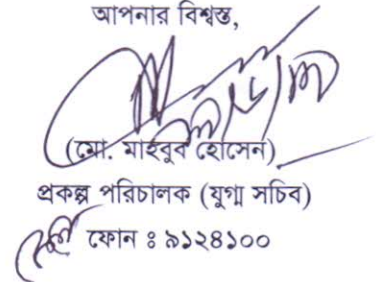 আপনার বিশ্বস্ত,
(মো. মাহবুব হোসেন)
প্রকল্প পরিচালক (যুগ্ম সচিব)
ফোন ঃ ৯১২৪১০০